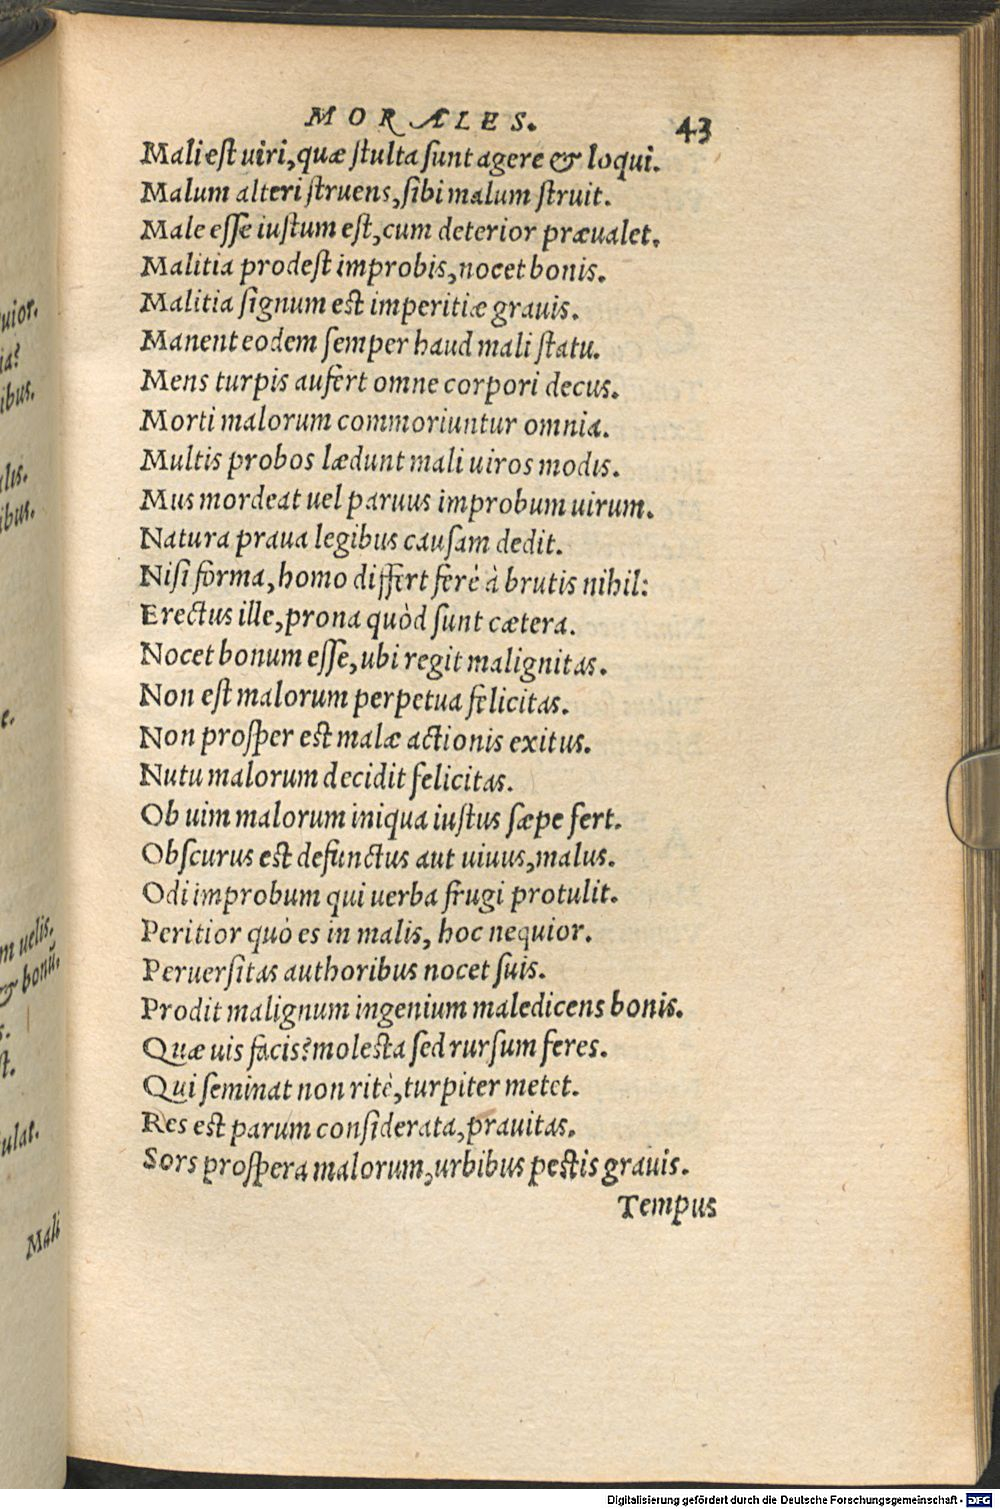 MORALES.
43
Mali est uiri, quæ stulta sunt agere & loqui.
Malum alteri struens, sibi malum struit.
Male esse iustum est, cum deterior præualet.
Malitia prodest improbis, nocet bonis.
Malitia signum est imperitiæ grauis.
Manent eodem semper haud mali statu.
Mens turpis aufert omne corpori decus.
Morti malorum commoriuntur omnia.
Multis probos lædunt mali uiros modis.
Mus mordeat uel paruus improbum uirum.
Natura praua legibus causam dedit.
Nisi forma, homo differt ferè à brutis nihil:
Erectus ille, prona quòd sunt cætera.
Nocet bonum esse, ubi regit malignitas.
Non est malorum perpetua felicitas.
Non prosper est malæ actionis exitus.
Nutu malorum decidit felicitas.
Ob uim malorum iniqua iustus sæpe fert.
Obscurus est defunctus aut uiuus, malus.
Odi improbum qui uerba frugi protulit.
Peritior quò es in malis, hoc nequior.
Peruersitas authoribus nocet suis.
Prodit malignum ingenium maledicens bonis.
Quæ uis facis? molesta sed rursum feres.
Qui seminat non ritè, turpiter metet.
Res est parum considerata, prauitas.
Sors prospera malorum, urbibus pestis grauis.
Tempus
uelis.
& bonū.
Mali
Digitalisierung gefördert durch die Deutsche Forschungsgemeinschaft - DFG